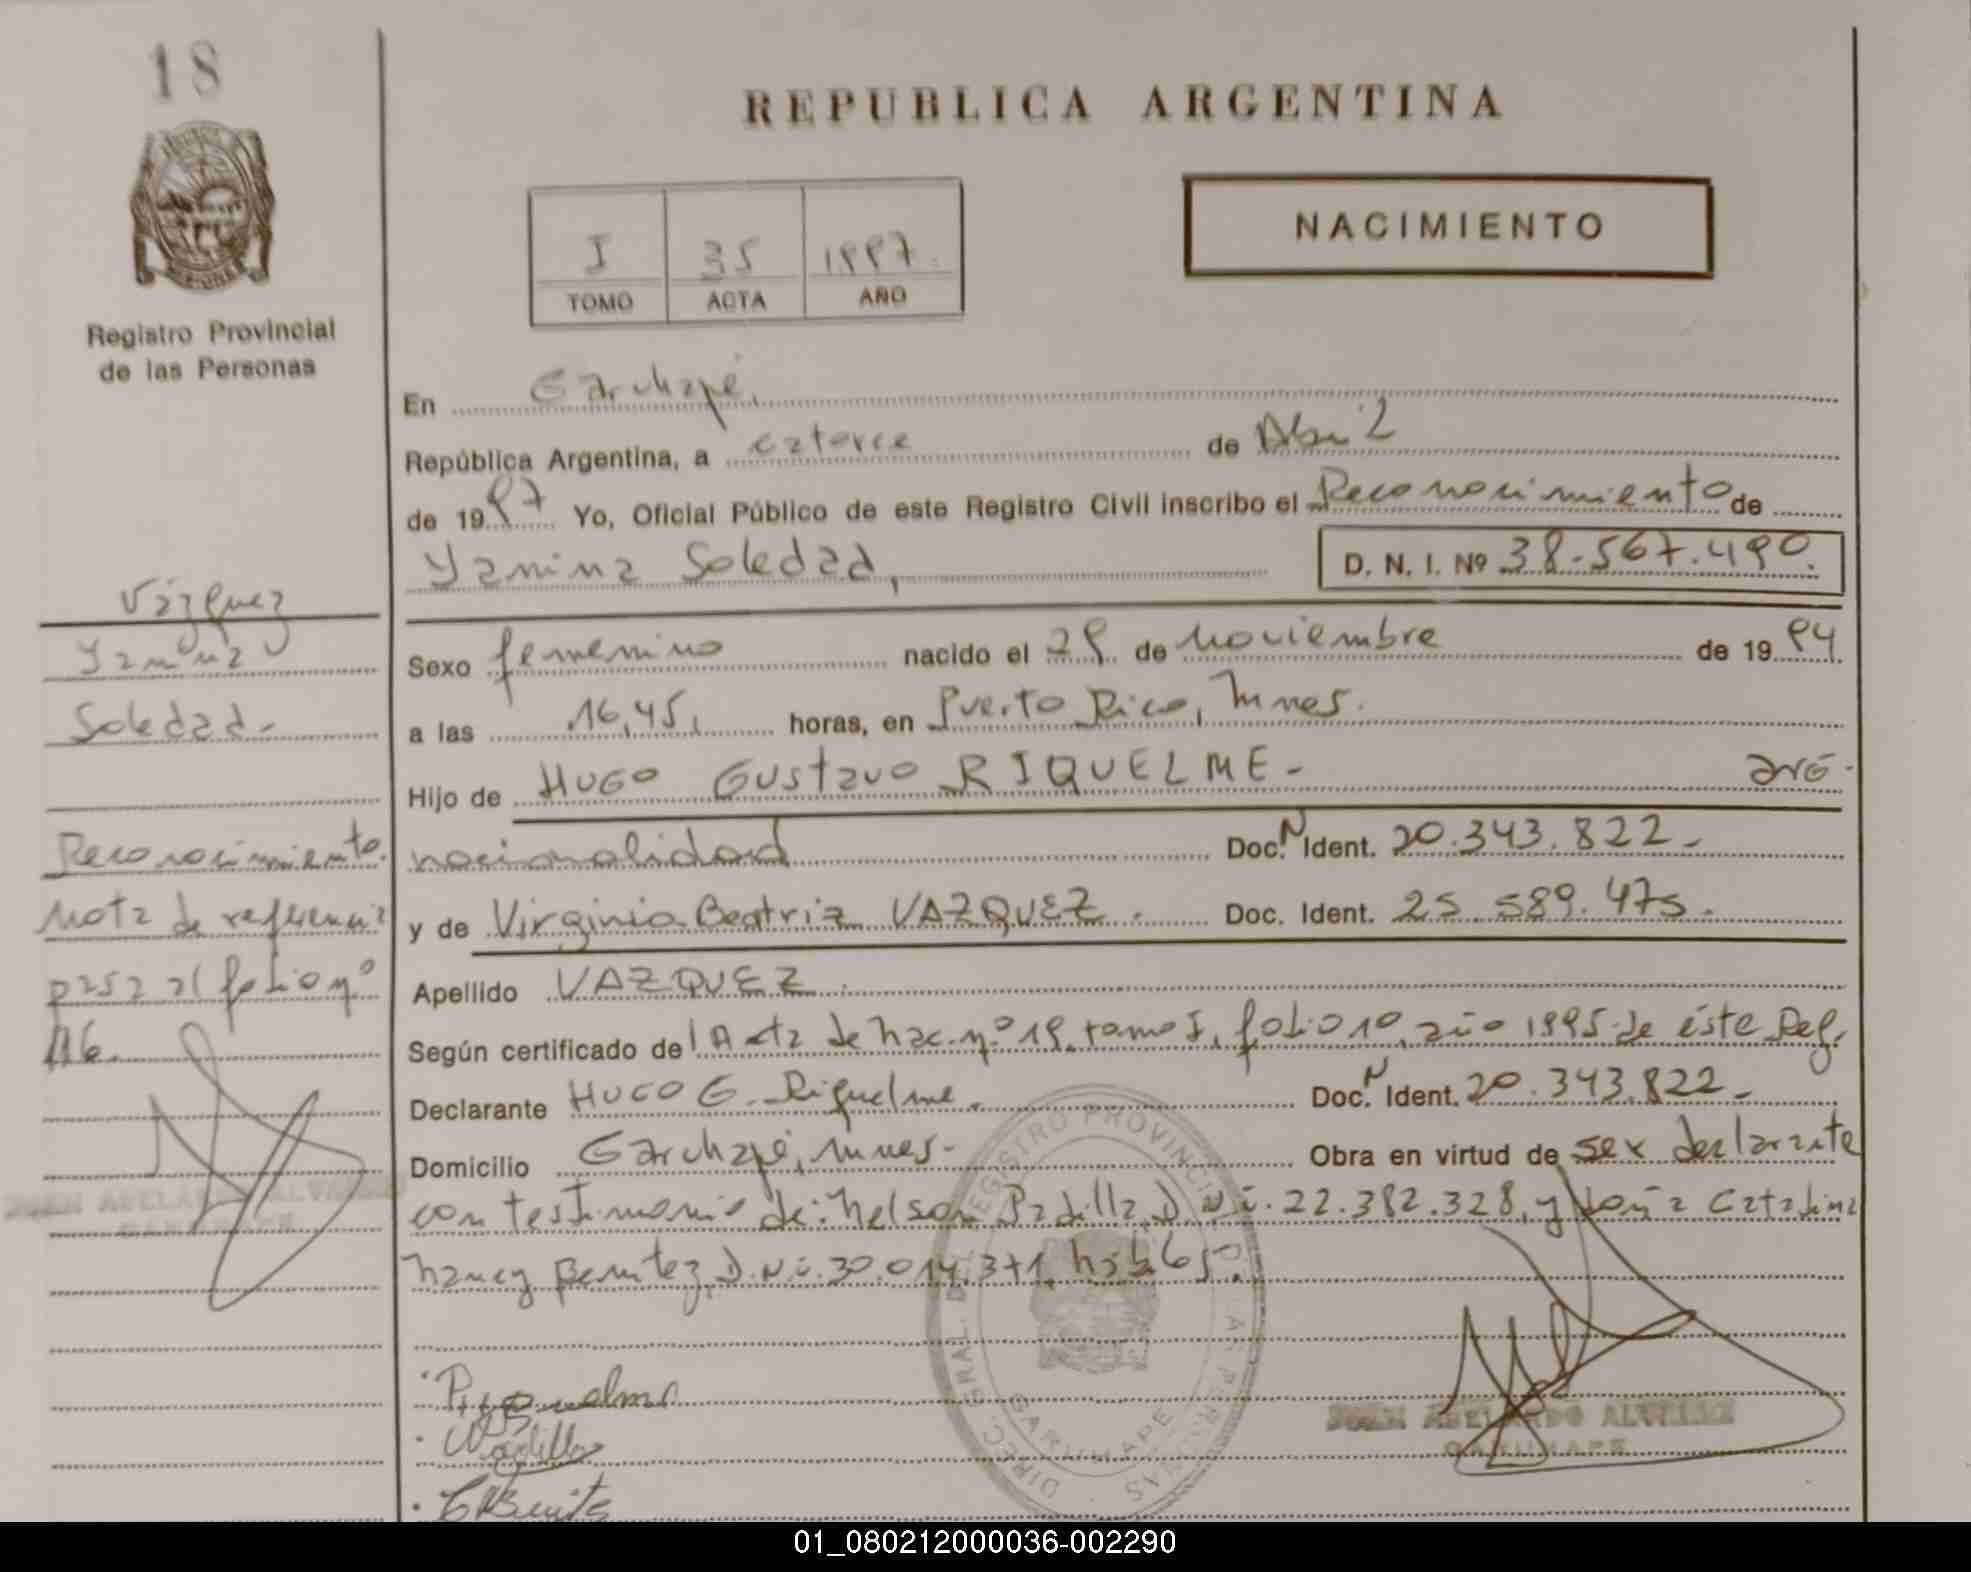 18
REPUBLICA ARGENTINA
NACIMIENTO
I 35 1997.
TOMO ACTA AÑO
Registro Provincial
de las Personas
En Garuhapé,
República Argentina, a catorce de Abril
de 1997 Yo, Oficial Público de este Registro Civil inscribo el Reconocimiento de
Yanina Soledad, D. N. I. Nº 38.567.490.
Vázquez
Yanina
Soledad.-
Sexo femenino nacido el 29 de Noviembre de 1994
a las 16,45, horas, en Puerto Rico, Mnes.
Hijo de HUGO Gustavo RIQUELME.- arg.
nacionalidad Doc. N Ident. 20.343.822.-
y de Virginia Beatriz VAZQUEZ. Doc. Ident. 25.589.475.
Apellido VAZQUEZ.
Reconocimiento.
Nota de referencia
pasa al folio nº
116.
Según certificado del Acta de Nac. nº 19, tomo I, folio 10, año 1995 de éste Reg.
Declarante HUGO G. Riquelme. Doc. N Ident. 20.343.822.-
Domicilio Garuhapé, Mnes.- Obra en virtud de ser declarante
con testimonio de: Nelson Padilla, D.N.i. 22.382.328, y doña Catalina
Nancy Benitez, D.N.i. 30.014.371, háb.
DIREC. GRAL. DEL REGISTRO PROVINCIAL DE LAS PERSONAS
GARUHAPE
JUAN ABELARDO ALVAREZ
GARUHAPE
JUAN ABELARDO ALVAREZ
GARUHAPE
Riquelme
Padilla
Benitez
01_080212000036-002290